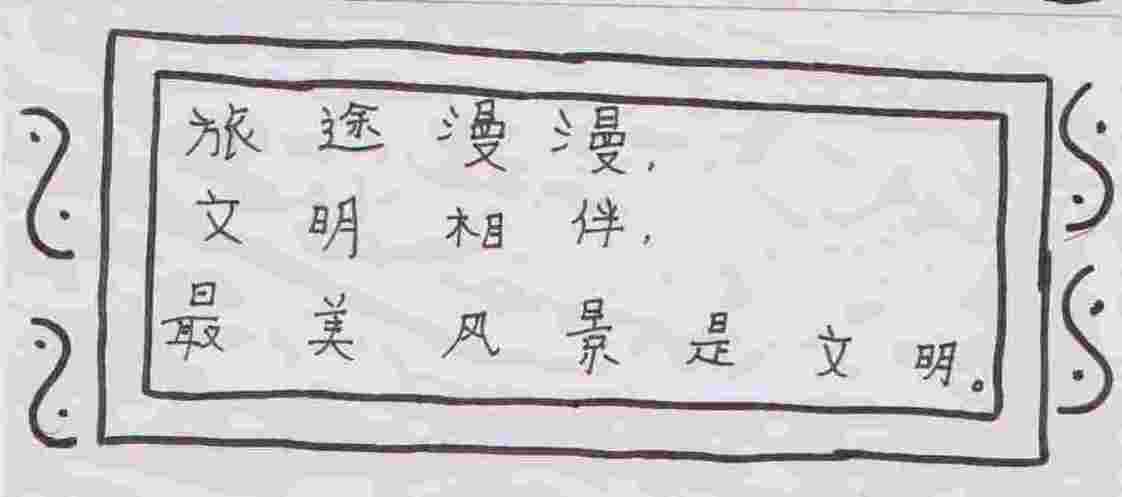 旅途漫漫，
文明相伴，
最美风景是文明。